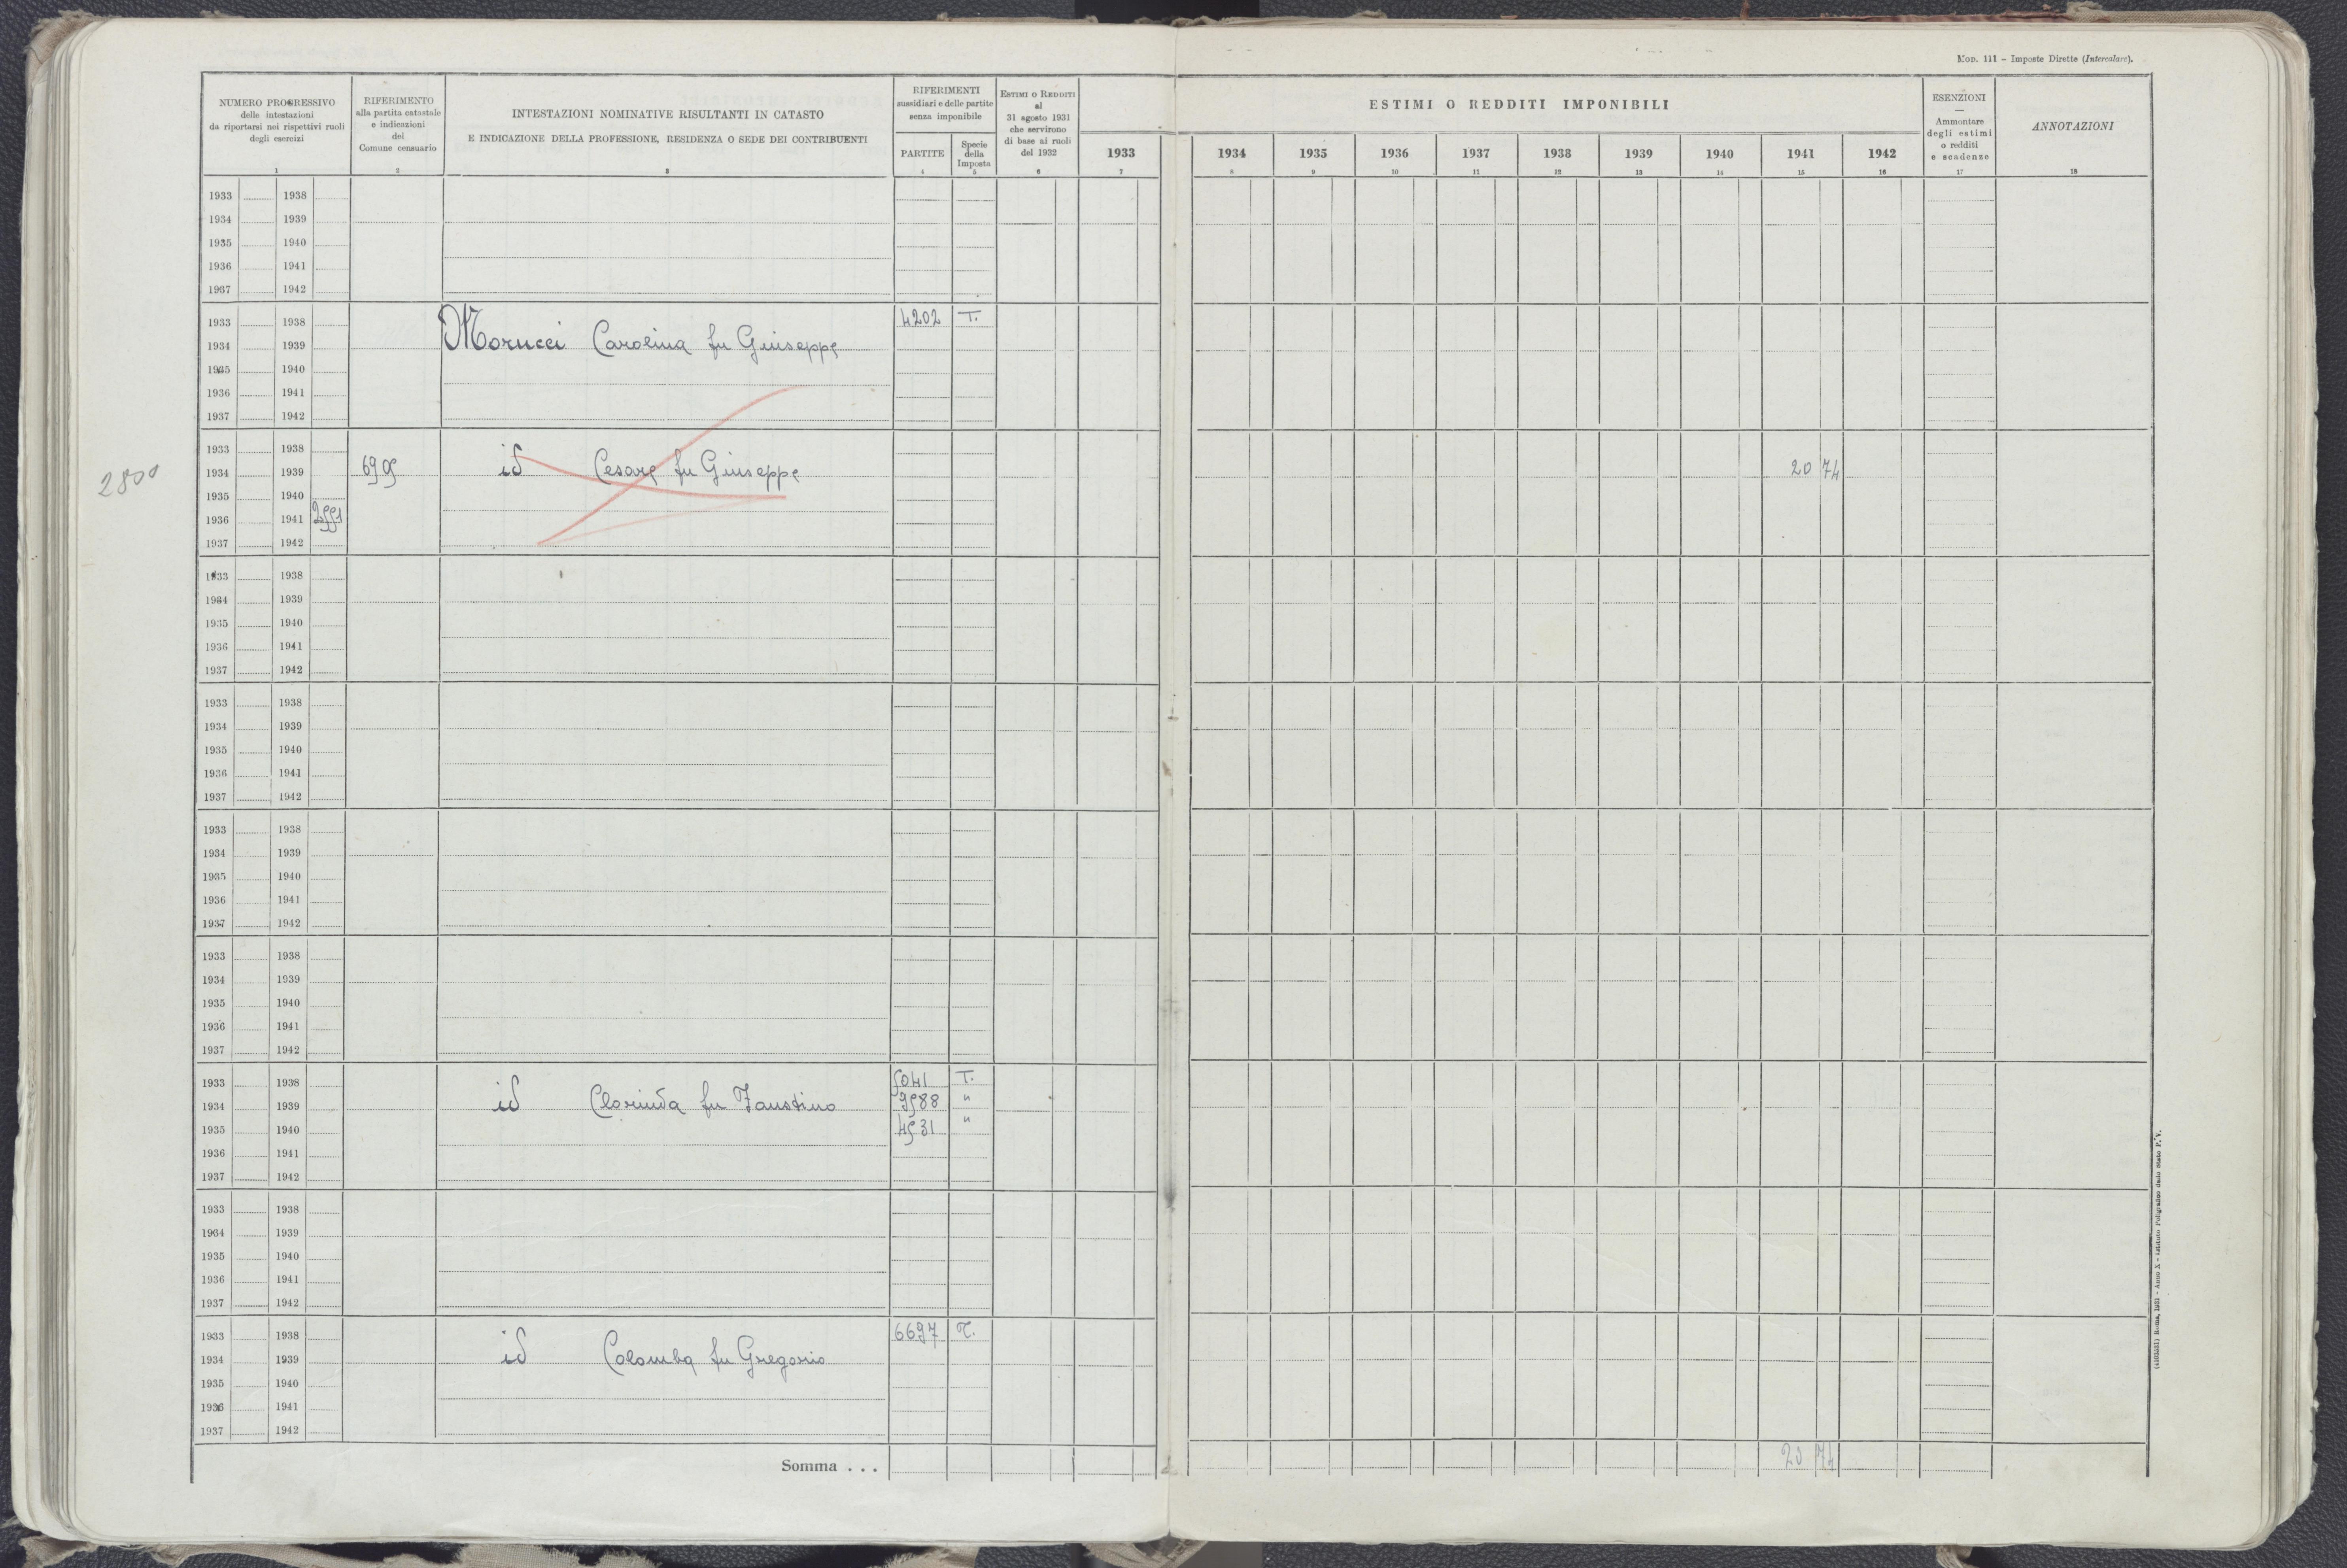 Mod. 111 – Imposte Dirette (Intercalare).
NUMERO PROGRESSIVO
delle intestazioni
da riportarsi nei rispettivi ruoli
degli esercizi
1
RIFERIMENTO
alla partita catastale
e indicazioni
del
Comune censuario
2
INTESTAZIONI NOMINATIVE RISULTANTI IN CATASTO
E INDICAZIONE DELLA PROFESSIONE, RESIDENZA O SEDE DEI CONTRIBUENTI
3
RIFERIMENTI
sussidiari e delle partite
senza imponibile
PARTITE
4
Specie
della
Imposta
5
ESTIMI O REDDITI
al
31 agosto 1931
che servirono
di base ai ruoli
del 1932
6
ESTIMI O REDDITI IMPONIBILI
1933 1934 1935 1936 1937 1938 1939 1940 1941 1942
7 8 9 10 11 12 13 14 15 16
ESENZIONI
—
Ammontare
degli estimi
o redditi
e scadenze
17
ANNOTAZIONI
18
1933 1938
1934 1939
1935 1940
1936 1941
1937 1942
1933 1938 4202 T.
1934 1939 Morucci Carolina fu Giuseppe
1935 1940
1936 1941
1937 1942
1933 1938
2800 1934 1939 6909 id Cesare fu Giuseppe 20 74
1935 1940
1936 1941 2551
1937 1942
1933 1938
1934 1939
1935 1940
1936 1941
1937 1942
1933 1938
1934 1939
1935 1940
1936 1941
1937 1942
1933 1938
1934 1939
1935 1940
1936 1941
1937 1942
1933 1938
1934 1939
1935 1940
1936 1941
1937 1942
1933 1938 5041 T.
1934 1939 id Clorinda fu Faustino 9588 "
1935 1940 4531 "
1936 1941
1937 1942
1933 1938
1934 1939
1935 1940
1936 1941
1937 1942
1933 1938 6697 T.
1934 1939 id Colomba fu Gregorio
1935 1940
1936 1941
1937 1942
Somma . . . 20 74